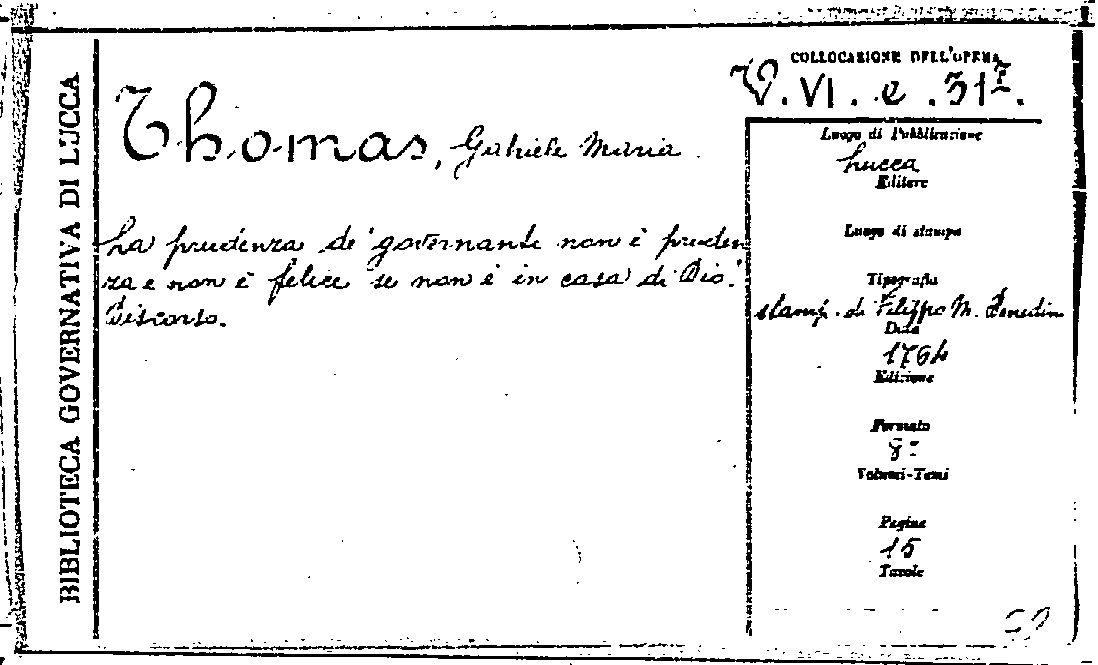 BIBLIOTECA GOVERNATIVA DI LUCCA
Thomas, Gabriele Maria
La prudenza de' governanti non è pruden
za e non è felice se non è in casa di Dio.
Discorso.
COLLOCAZIONE DELL'OPERA
V. VI. e. 31⁷.
Luogo di Pubblicazione
Lucca
Editore
Luogo di stampa
Tipografia
stamp. di Filippo M. Benedin
Data
1764
Edizione
Formato
8°
Volumi-Tomi
Pagine
15
Tavole